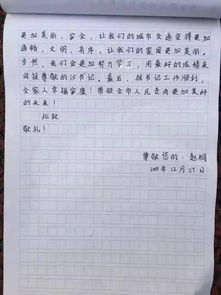 更加美丽、安全，让我们的城市交通变得更加
通畅、文明、有序，让我们的家园更加美丽。
当然，我们会更加努力学习，用最好的成绩来
回报尊敬的书记。最后，祝书记工作顺利，
全家人幸福安康！带领全市人民走向更加美好
的未来！
此致
敬礼！
尊敬您的：赵
2019年12月27日